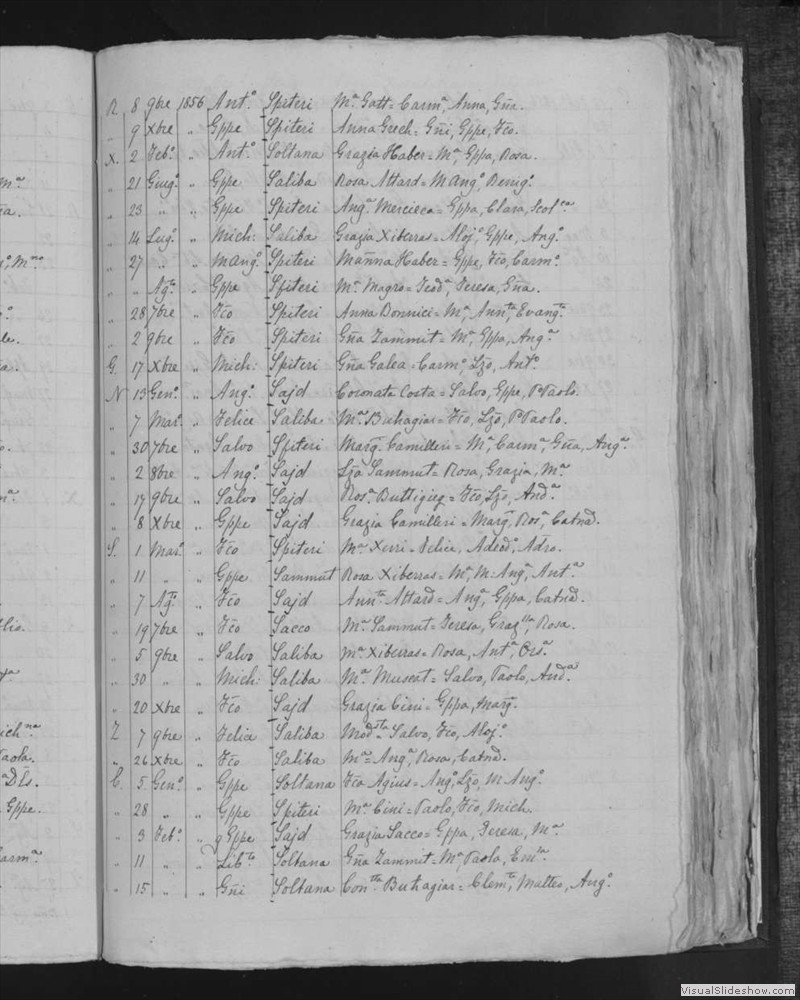 R. 8 9bre 1856 Ant.o Spiteri Ma Gatt = Carma, Anna, Gña.
„ 9 Xbre „ Gppe Spiteri Anna Grech = Gñi, Gppe, Fco.
X. 2 Feb.o „ Ant.o Soltana Grazia Haber = Ma, Gppa, Rosa.
„ 21 Giug.o „ Gppe Saliba Rosa Attard = M Ang.o Benig.o
„ 23 „ „ Gppe Spiteri Anga Mercieca = Gppa, Clara, Scolca
„ 14 Lug.o „ Mich: Saliba Grazia Xiberras = Aloj.o, Gppe, Ang.o
„ 27 „ „ M Ang.o Spiteri Mañna Haber = Gppe, Fco, Carm.o
„ „ Ag.to „ Gppe Spiteri Ma Magro = Teoda, Teresa, Gña.
„ 28 7bre „ Fco Spiteri Anna Bonnici = Ma, Annta, Evangta
„ 2 9bre „ Fco Spiteri Gña Zammit = Ma, Gppa, Anga
G. 17 Xbre „ Mich: Spiteri Gña Galea = Carm.o, Lzo, Ant.o
N 13 Gen.o „ Ang.o Sajd Coronata Costa = Salvo, Gppe, P. Paolo.
„ 7 Mar.o „ Felice Saliba Ma Buhagiar = Fco, Lzo, P. Paolo.
„ 30 7bre „ Salvo Spiteri Marg. Camilleri = Ma, Carma, Gña, Anga
„ 2 8bre „ Ang.o Sajd Lza Sammut = Rosa, Grazia, Ma
„ 17 9bre „ Salvo Sajd Rosa Buttigieg = Fco, Lzo, Anda
„ 8 Xbre „ Gppe Sajd Grazia Camilleri = Marg, Rosa, Catnd.
S. 1 Mar.o „ Fco Spiteri Ma Xerri = Felice,
„ 11 „ Gppe Sammut Rosa Xiberras = Ma, M. Anga, Anta
„ 7 Ag.to „ Fco Sajd Annta Attard = Anga, Gppa, Catnd.
„ 19 7bre „ Fco Sacco Ma Sammut = Teresa, Grazlla, Rosa.
„ 5 9bre „ Salvo Saliba Ma Xiberras = Rosa, Anta, Orsa
„ 30 „ „ Mich: Saliba Ma Muscat = Salvo, Paolo, Anda
„ 20 Xbre „ Fco Sajd Grazia Cini = Gppa, Marg.
Z 7 9bre „ Felia Saliba Modsta Salvo, Fco, Aloj.o
„ 26 Xbre „ Fco Saliba Ma = Anga, Rosa, Catnd.
C. 5 Gen.o „ Gppe Soltana Fca Agius = Ang.o, Lzo, M Ang.o
„ 28 „ „ Gppe Spiteri Ma Cini = Paolo, Fco, Mich.
„ 3 Feb.o „ Gppe Sajd Grazia Sacco = Gppa, Teresa, Ma
„ 11 „ „ Lib.to Soltana Gña Zammit = Ma, Paola,
„ 15 „ „ Gñi Soltana Contta Buhagiar = Clemte, Matteo, Ang.o
VisualSlideshow.com